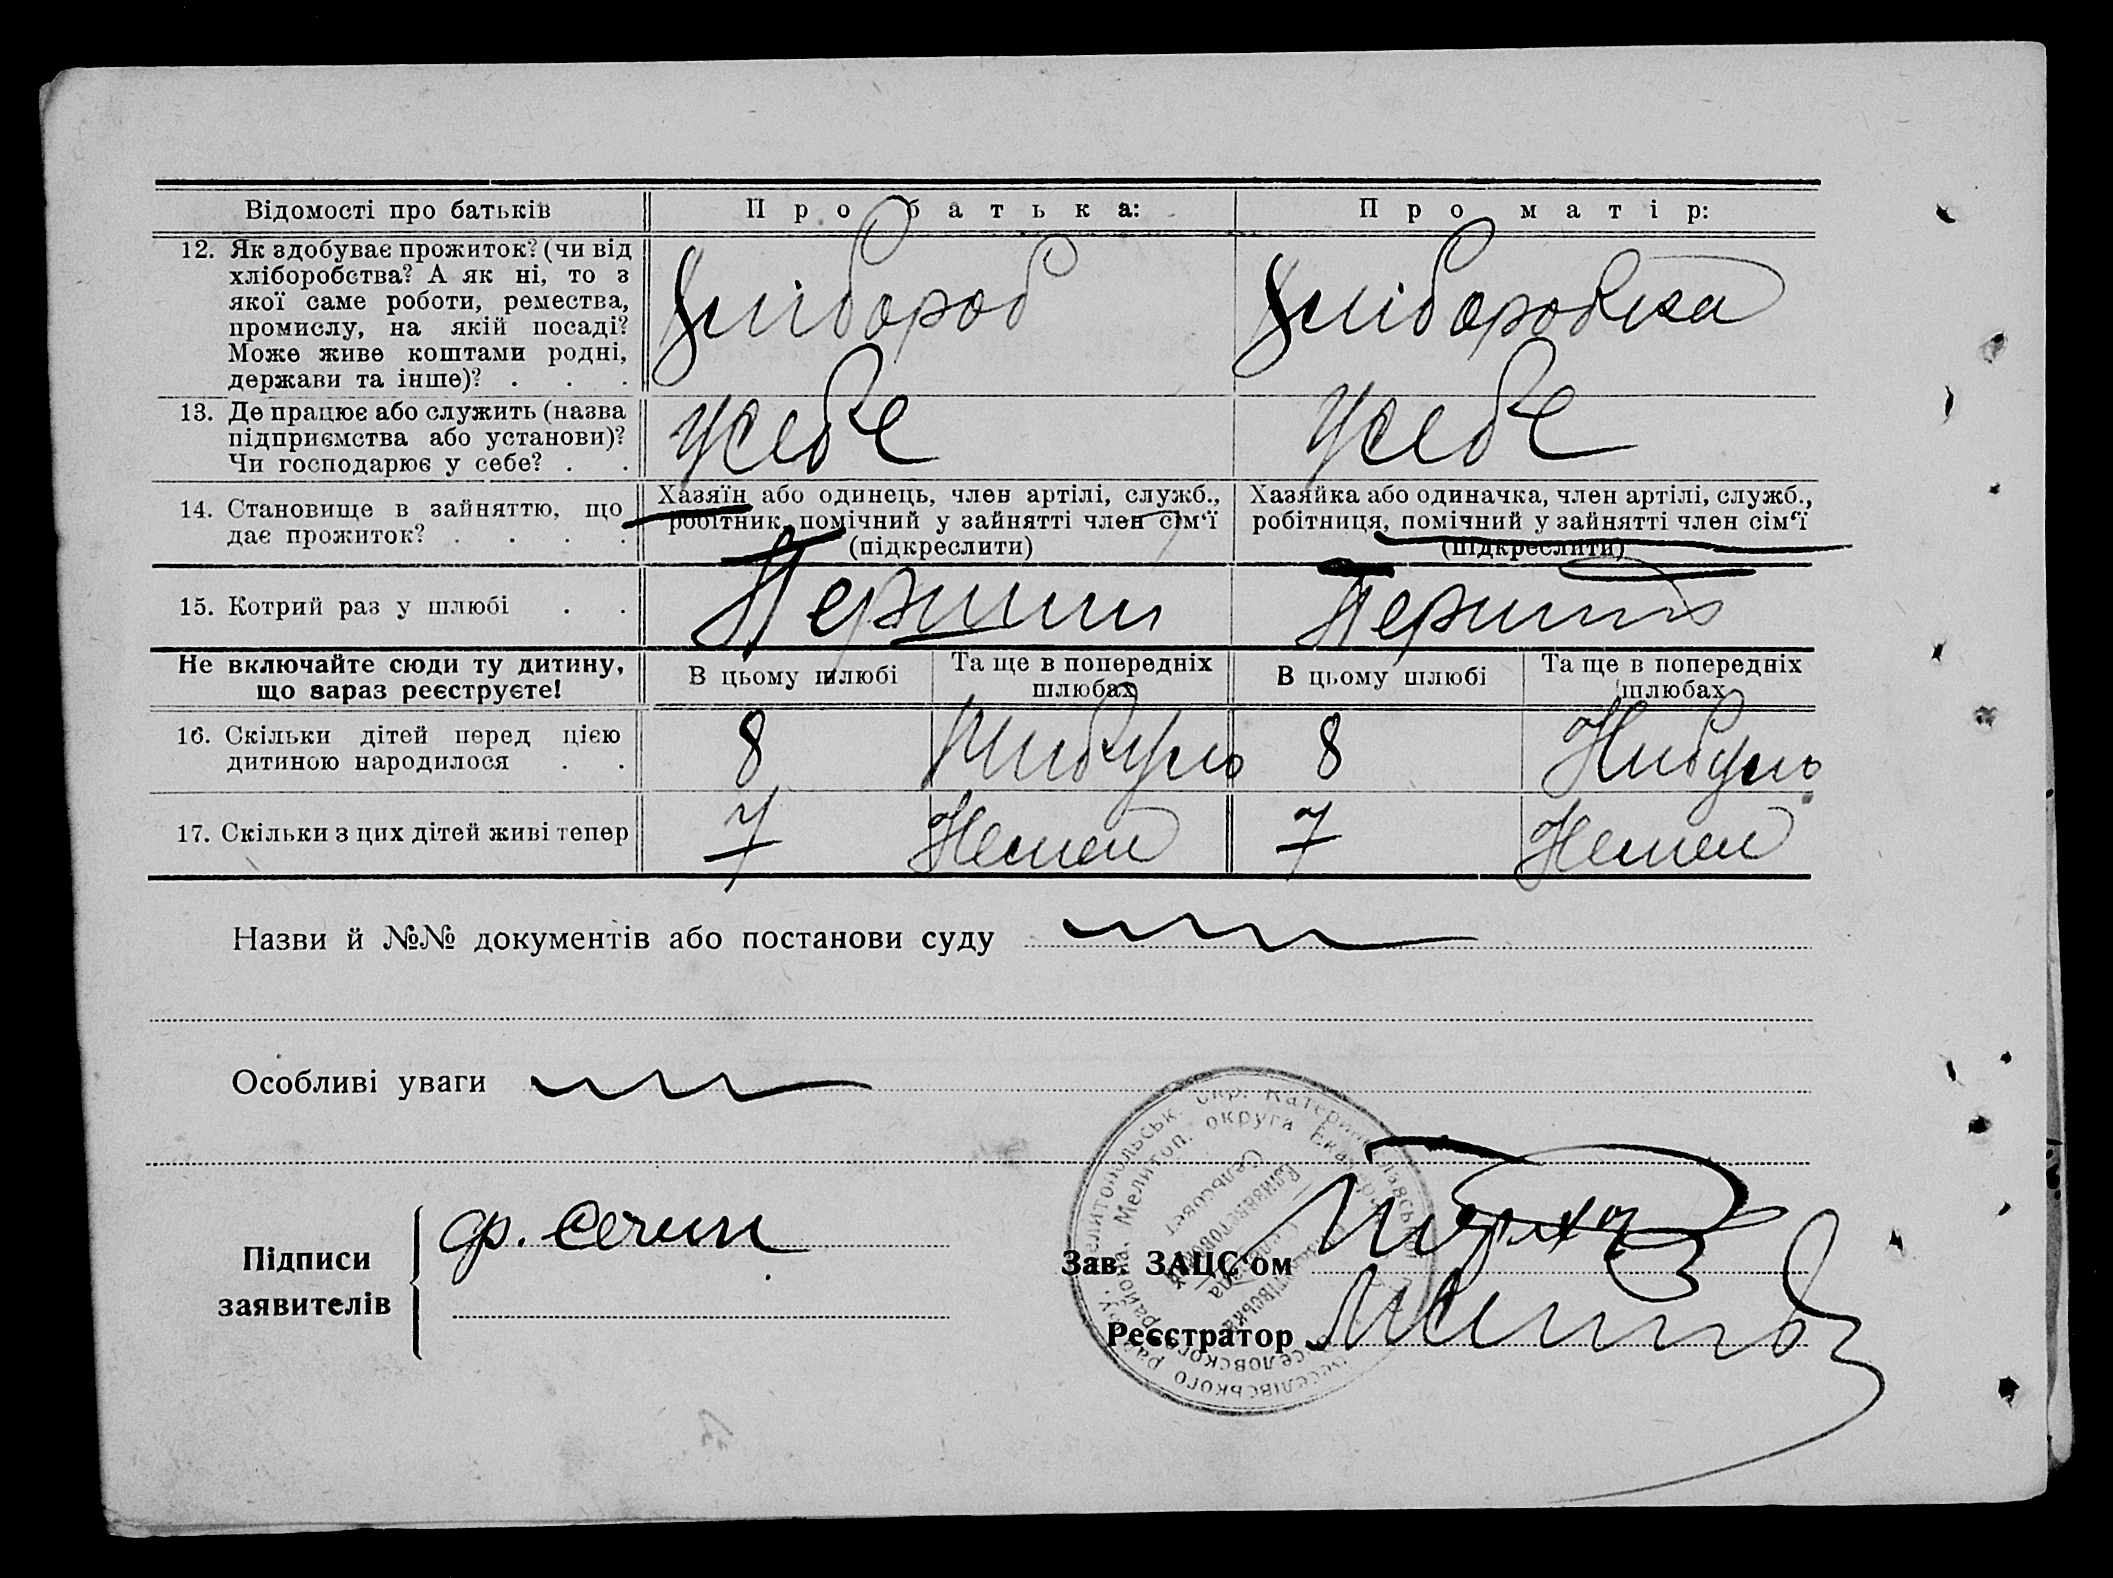 Відомості про батьків
Про батька:
Про матір:
12. Як здобуває прожиток? (чи від
хліборобства? А як ні, то з
якої саме роботи, ремества,
промислу, на якій посаді?
Може живе коштами родні,
держави та інше)? . . .
Хлібороб
Хліборобка
13. Де працює або служить (назва
підприємства або установи)?
Чи господарює у себе? . .
У себе
У себе
14. Становище в зайняттю, що
дає прожиток? . . . .
Хазяїн або одинець, член артілі, служб.,
робітник, помічний у зайнятті член сім'ї
(підкреслити)
Хазяйка або одиначка, член артілі, служб.,
робітниця, помічний у зайнятті член сім'ї
(підкреслити)
15. Котрий раз у шлюбі . .
Перший
Не включайте сюди ту дитину,
що зараз реєструєте!
В цьому шлюбі
Та ще в попередніх
шлюбах
В цьому шлюбі
Та ще в попередніх
шлюбах
16. Скільки дітей перед цією
дитиною народилося . .
8
Нибуло
8
Нибуло
17. Скільки з цих дітей живі тепер
7
Немає
7
Немає
Назви й №№ документів або постанови суду
Особливі уваги
Підписи
заявителів
ф. Сечин
Зав. ЗАЦС'ом
Реєстратор